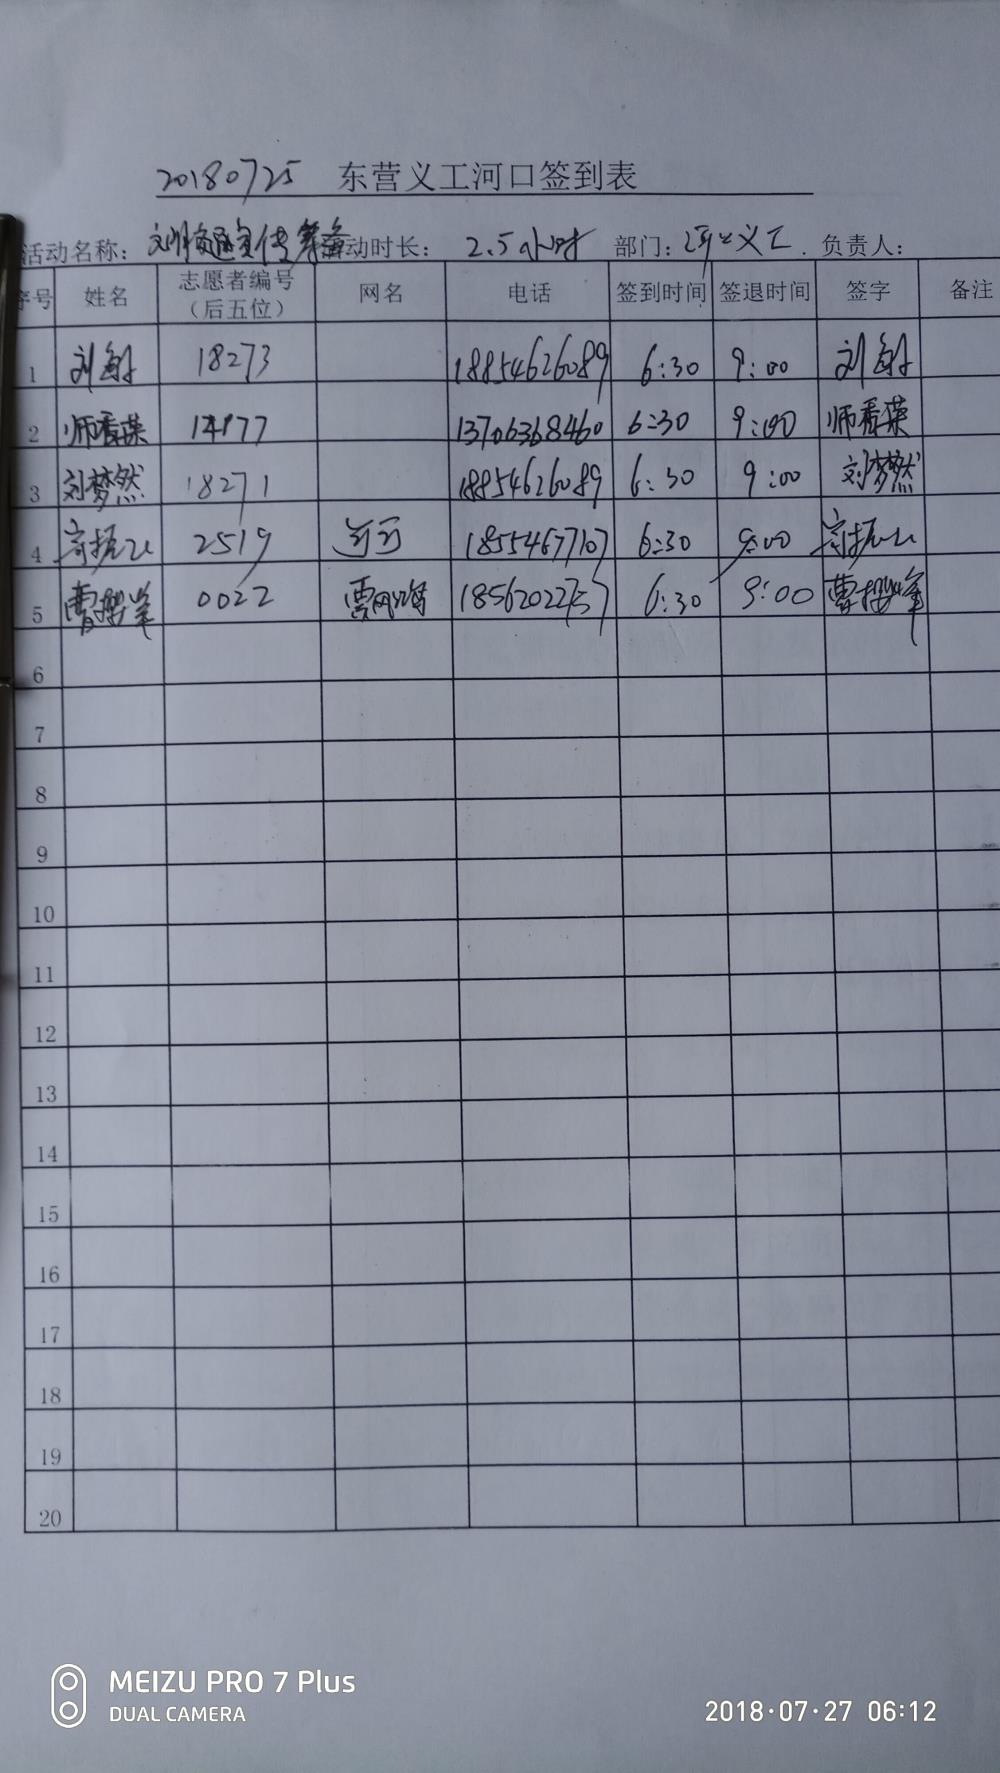 20180725 东营义工河口签到表
活动名称：文明交通宣传 动时长：2.5小时 部门：河口义工 负责人：
序号 姓名 志愿者编号（后五位） 网名 电话 签到时间 签退时间 签字 备注
1 刘 18273 18854626089 6:30 9:00 刘
2 师春荣 14977 13706368460 6:30 9:00 师春荣
3 刘梦然 18271 18854626089 6:30 9:00 刘梦然
4 2519 18554677107 6:30 9:00
5 曹 0022 6:30 9:00 曹
6
7
8
9
10
11
12
13
14
15
16
17
18
19
20
MEIZU PRO 7 Plus
DUAL CAMERA
2018·07·27 06:12